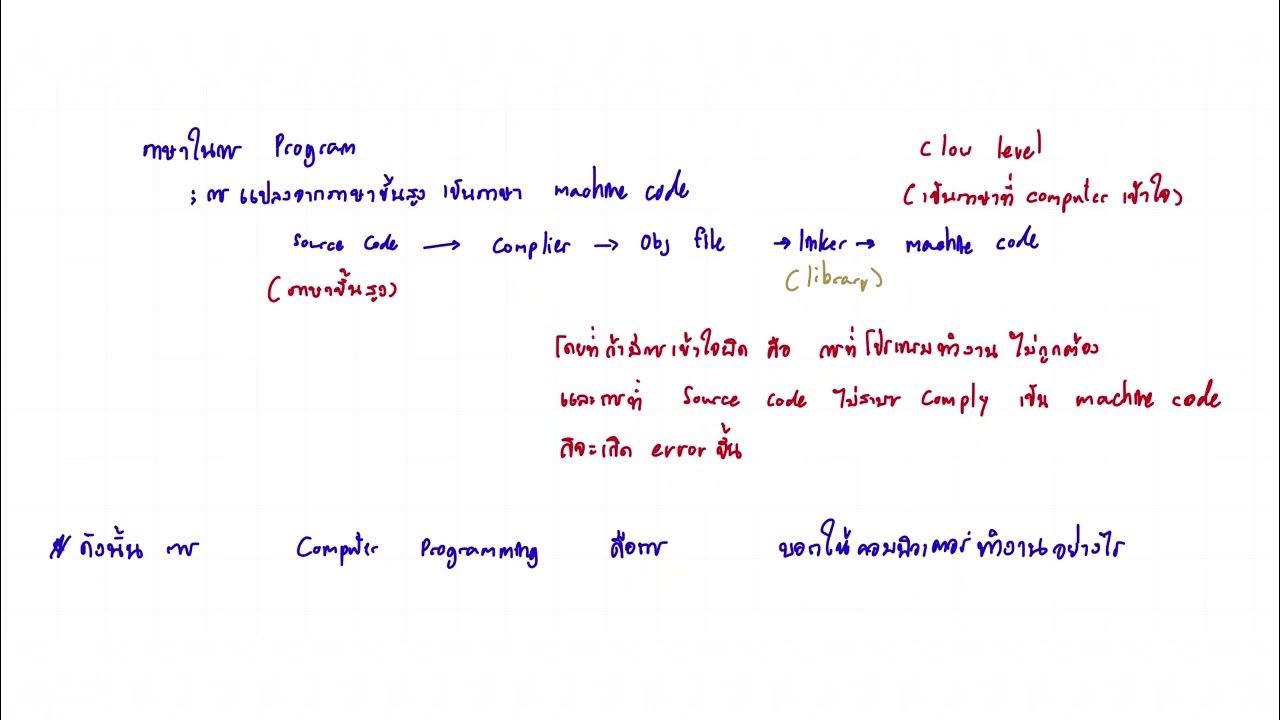 ภาษาในการ Program
C low level
; การ แปลงจากภาษาขั้นสูง เป็นภาษา machine code
(เป็นภาษาที่ computer เข้าใจ)
source code → complier → obj file → linker → machine code
(ภาษาขั้นสูง)
(library)
โดยที่ถ้ามีการเข้าใจผิด คือ การที่โปรแกรมทำงาน ไม่ถูกต้อง
และการที่ source code ไม่สามารถ comply เป็น machine code
ก็จะเกิด error ขึ้น
ดังนั้น การ Computer Programming คือการ บอกให้คอมพิวเตอร์ทำงานอย่างไร